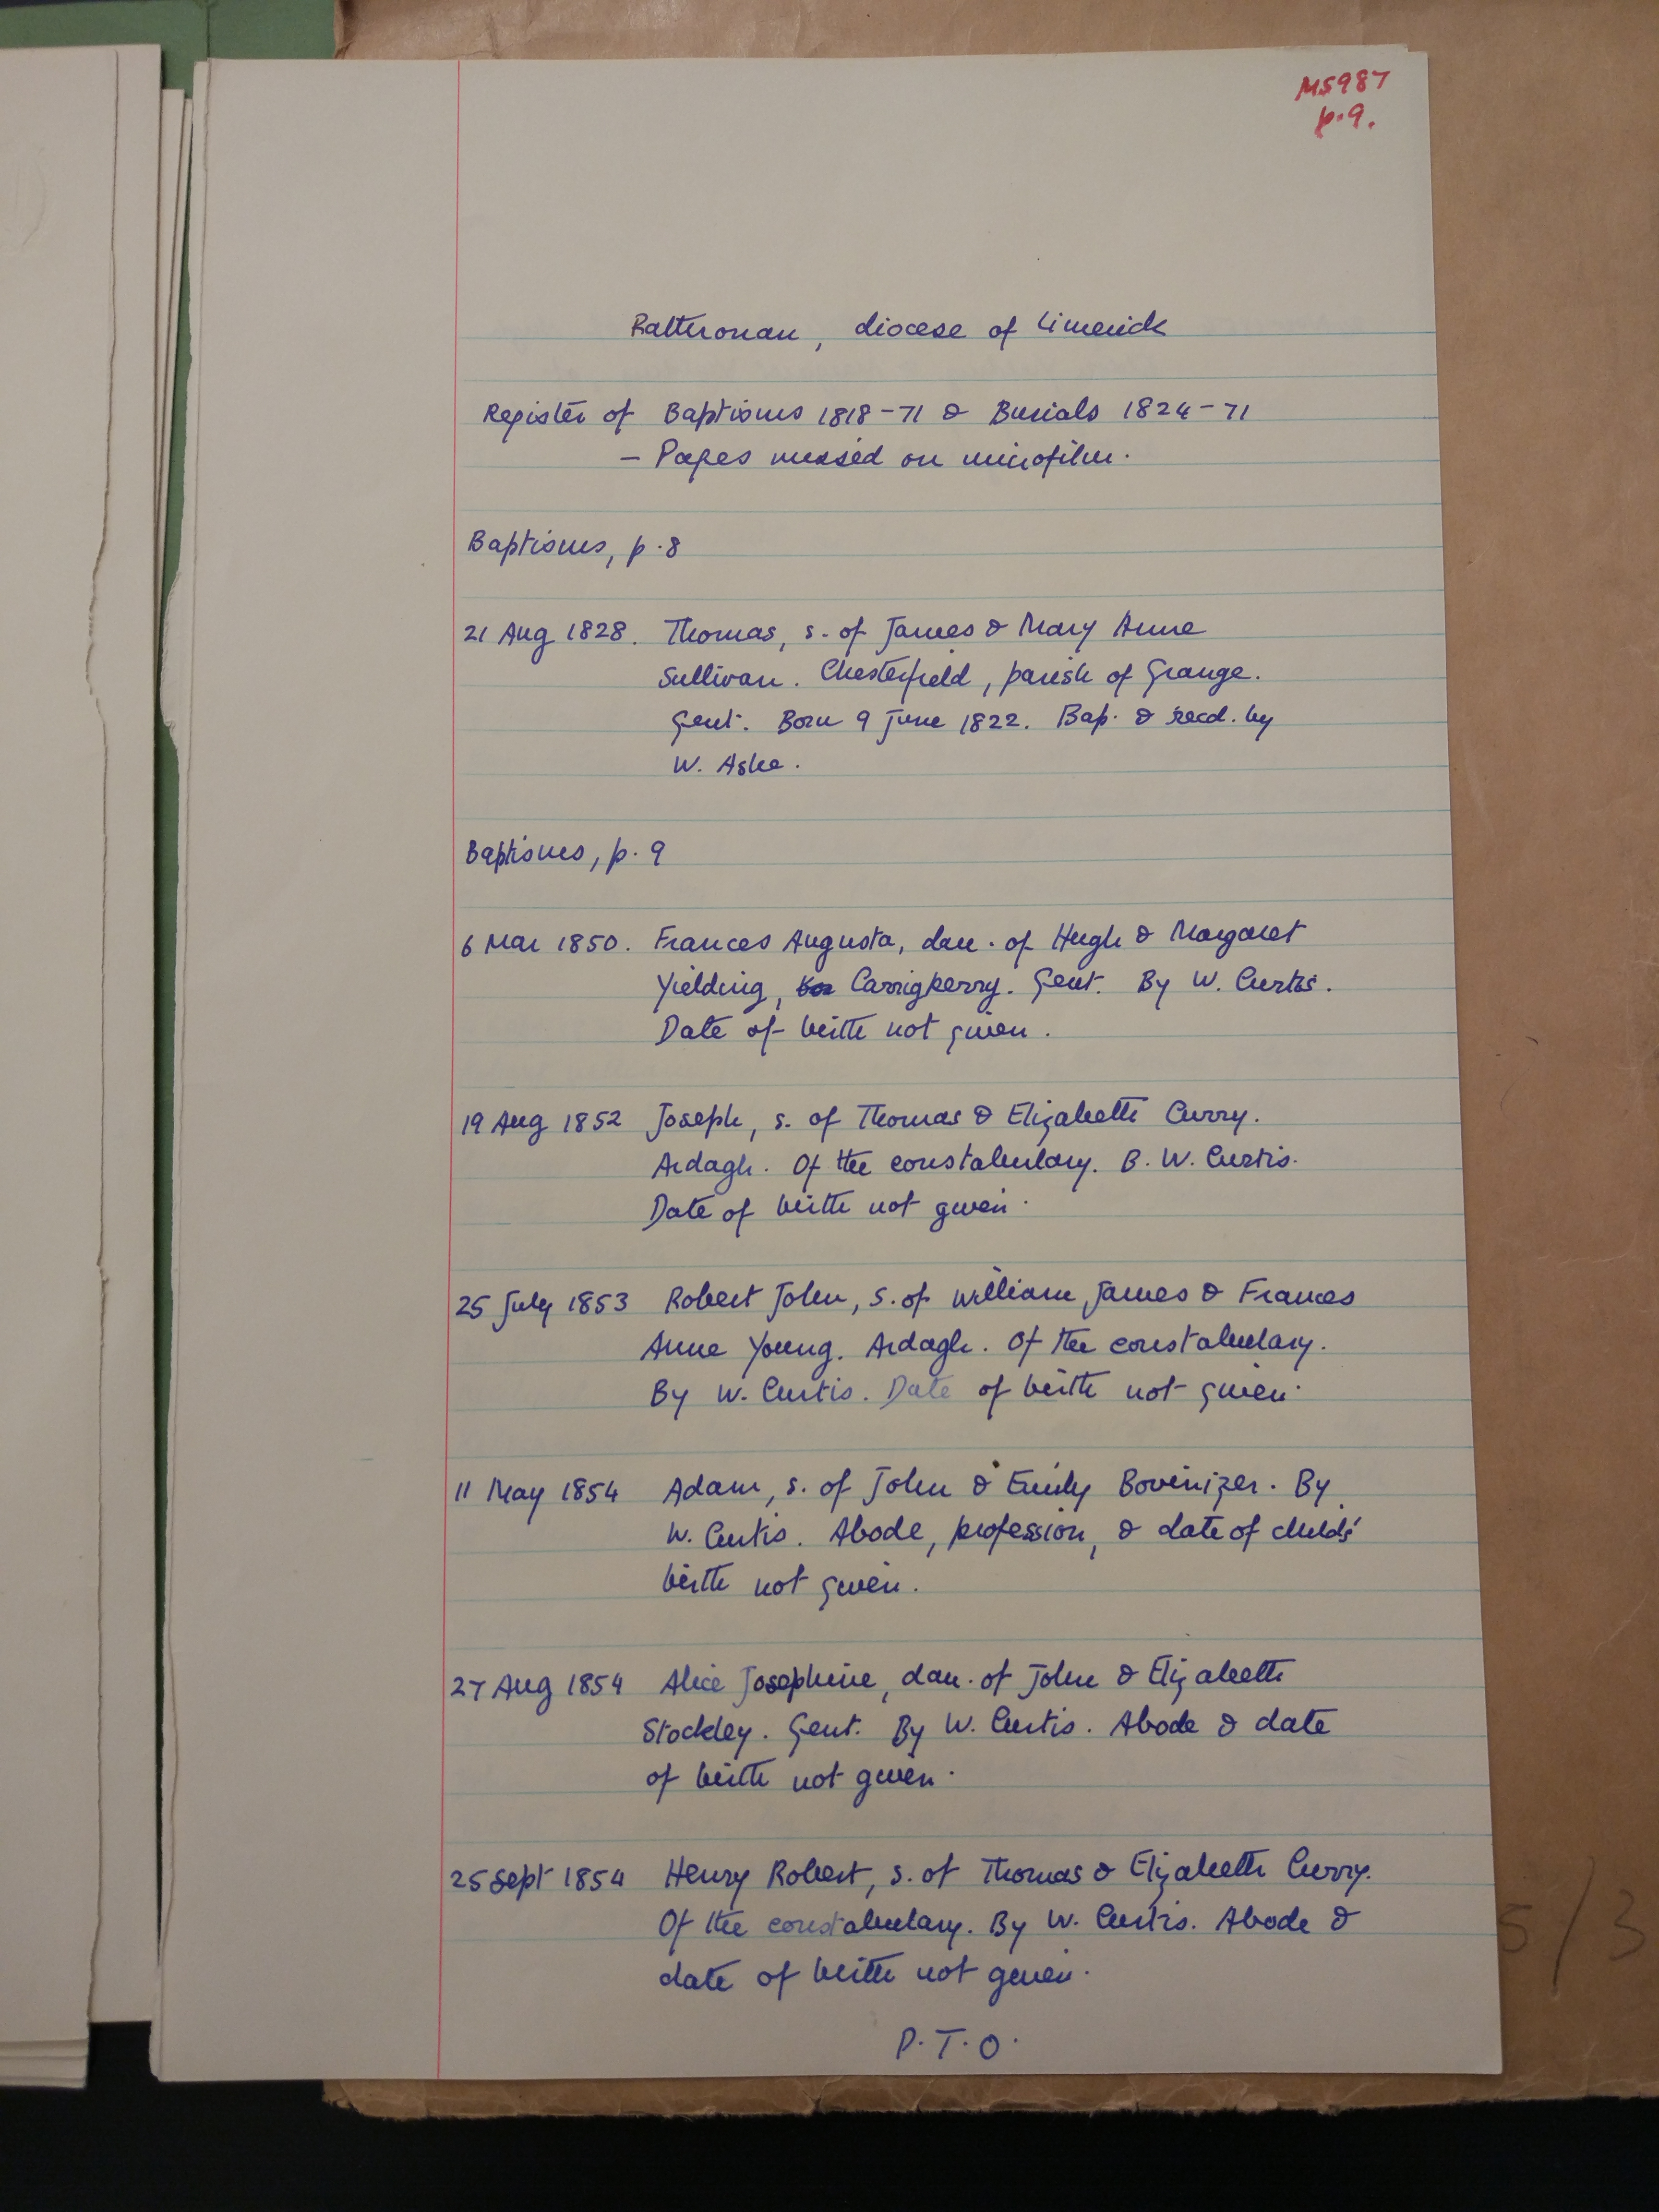 MS987
p.9.
Rathronan, diocese of Limerick
Register of Baptisms 1818-71 & Burials 1824-71
- Pages missed on microfilm.
Baptisms, p.8
21 Aug 1828. Thomas, s. of James & Mary Anne
Sullivan. Chesterfield, parish of Grange.
Gent. Born 9 June 1822. Bap. & recd. by
W. Ashe.
Baptisms, p.9
6 Mar 1850. Frances Augusta, dau. of Hugh & Margaret
Yielding, Carrigkerry. Gent. By W. Curtis.
Date of birth not given.
19 Aug 1852 Joseph, s. of Thomas & Elizabeth Curry.
Ardagh. Of the constabulary. B. W. Curtis.
Date of birth not given.
25 July 1853 Robert John, s. of William James & Frances
Anne Young. Ardagh. Of the constabulary.
By W. Curtis. Date of birth not given.
11 May 1854 Adam, s. of John & Emily Bovenizer. By
W. Curtis. Abode, profession, & date of child's
birth not given.
27 Aug 1854 Alice Josephine, dau. of John & Elizabeth
Stockley. Gent. By W. Curtis. Abode & date
of birth not given.
25 Sept 1854 Henry Robert, s. of Thomas & Elizabeth Curry.
Of the constabulary. By W. Curtis. Abode &
date of birth not given.
P.T.O.
5/3